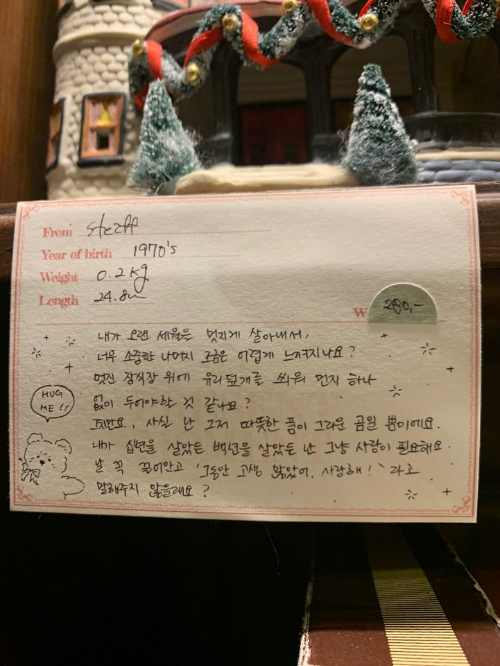 From Steiff
Year of birth 1970's
Weight 0.2kg
Length 24.8cm
W 280,-
내가 오랜 세월은 멋지게 살아내서,
너무 소중한 나머지 조금은 어렵게 느껴지나요?
멋진 장식장 위에 유리덮개를 씌워 먼지 하나
없이 두어야할 것 같나요?
그치만요, 사실 난 그저 따뜻한 품이 그리운 곰일 뿐이에요.
내가 십년을 살았든 백년을 살았든 난 그냥 사랑이 필요해요.
날 꼭 껴안고 '그동안 고생 많았어, 사랑해!' 라고
말해주지 않을래요?
HUG
ME!!